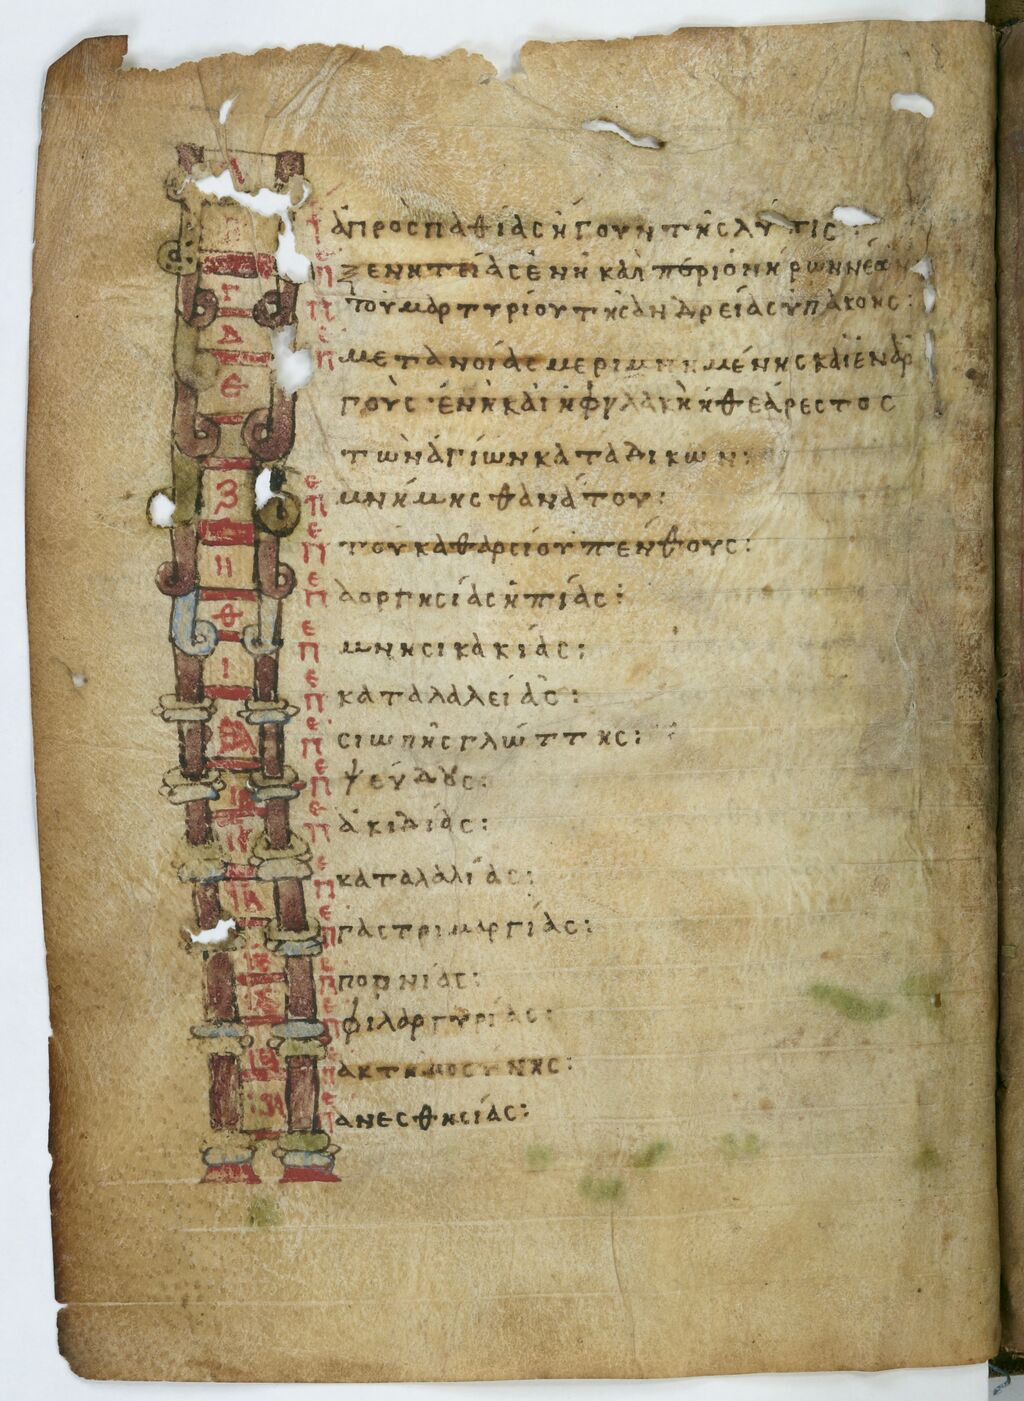 ἀπροσπαθίας ἤγουν τῆς λύπις:
ξενητείας ἐν ᾗ καὶ
τοῦ μαρτυρίου τῆς ἀνδρείας ὑπακοῆς:
μετανοίας μεριμνημένης καὶ ἐναρ
γοῦς ἐν ᾗ καὶ ἡ φυλακὴ ἡ θεάρεστος
τῶν ἁγίων καταδίκων:
μνήμης θανάτου:
τοῦ καθαρσίου πένθους:
ἀοργησίας ἠπίας:
μνησικακίας:
καταλαλείας:
σιωπῆς γλώττης:
ψεύδους:
ἀκιδίας:
καταλαλίας:
γαστριμαργίας:
πορνίας:
φιλαργυρίας:
ἀκτημοσύνης:
ἀνεσθησίας: